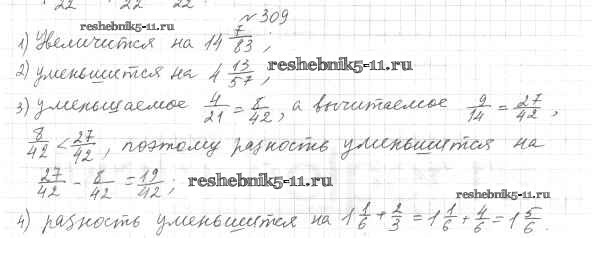 22 22 22
№ 309
reshebnik5-11.ru
1) Увеличится на 14 7/83 ;
2) уменьшится на 4 13/57 ; reshebnik5-11.ru
3) уменьшаемое 4/21 = 8/42 , а вычитаемое 9/14 = 27/42 ,
8/42 < 27/42 , поэтому разность уменьшится на
27/42 - 8/42 = 19/42 ; reshebnik5-11.ru
reshebnik5-11.ru
4) разность уменьшится на 1 1/6 + 2/3 = 1 1/6 + 4/6 = 1 5/6 .